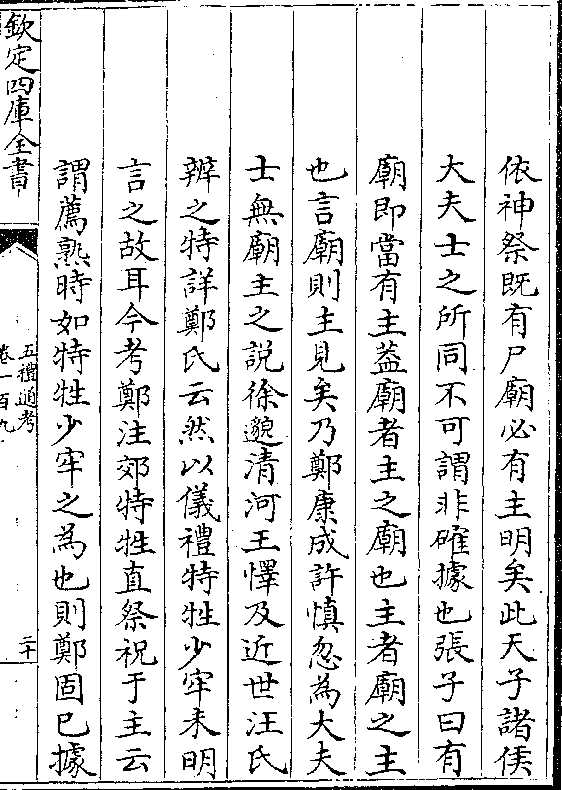 依神祭既有尸廟必有主明矣此天子諸侯
大夫士之所同不可謂非確據也張子曰有
廟即當有主葢廟者主之廟也主者廟之主
也言廟則主見矣乃鄭康成許慎忽為大夫
士無廟主之説徐邈清河王懌及近世汪氏
辨之特詳鄭氏云然以儀禮特牲少牢未明
言之故耳今考鄭注郊特牲直祭祝于主云
謂薦熟時如特牲少牢之為也則鄭固已據
欽定四庫全書
五禮通考
卷一百九
二十